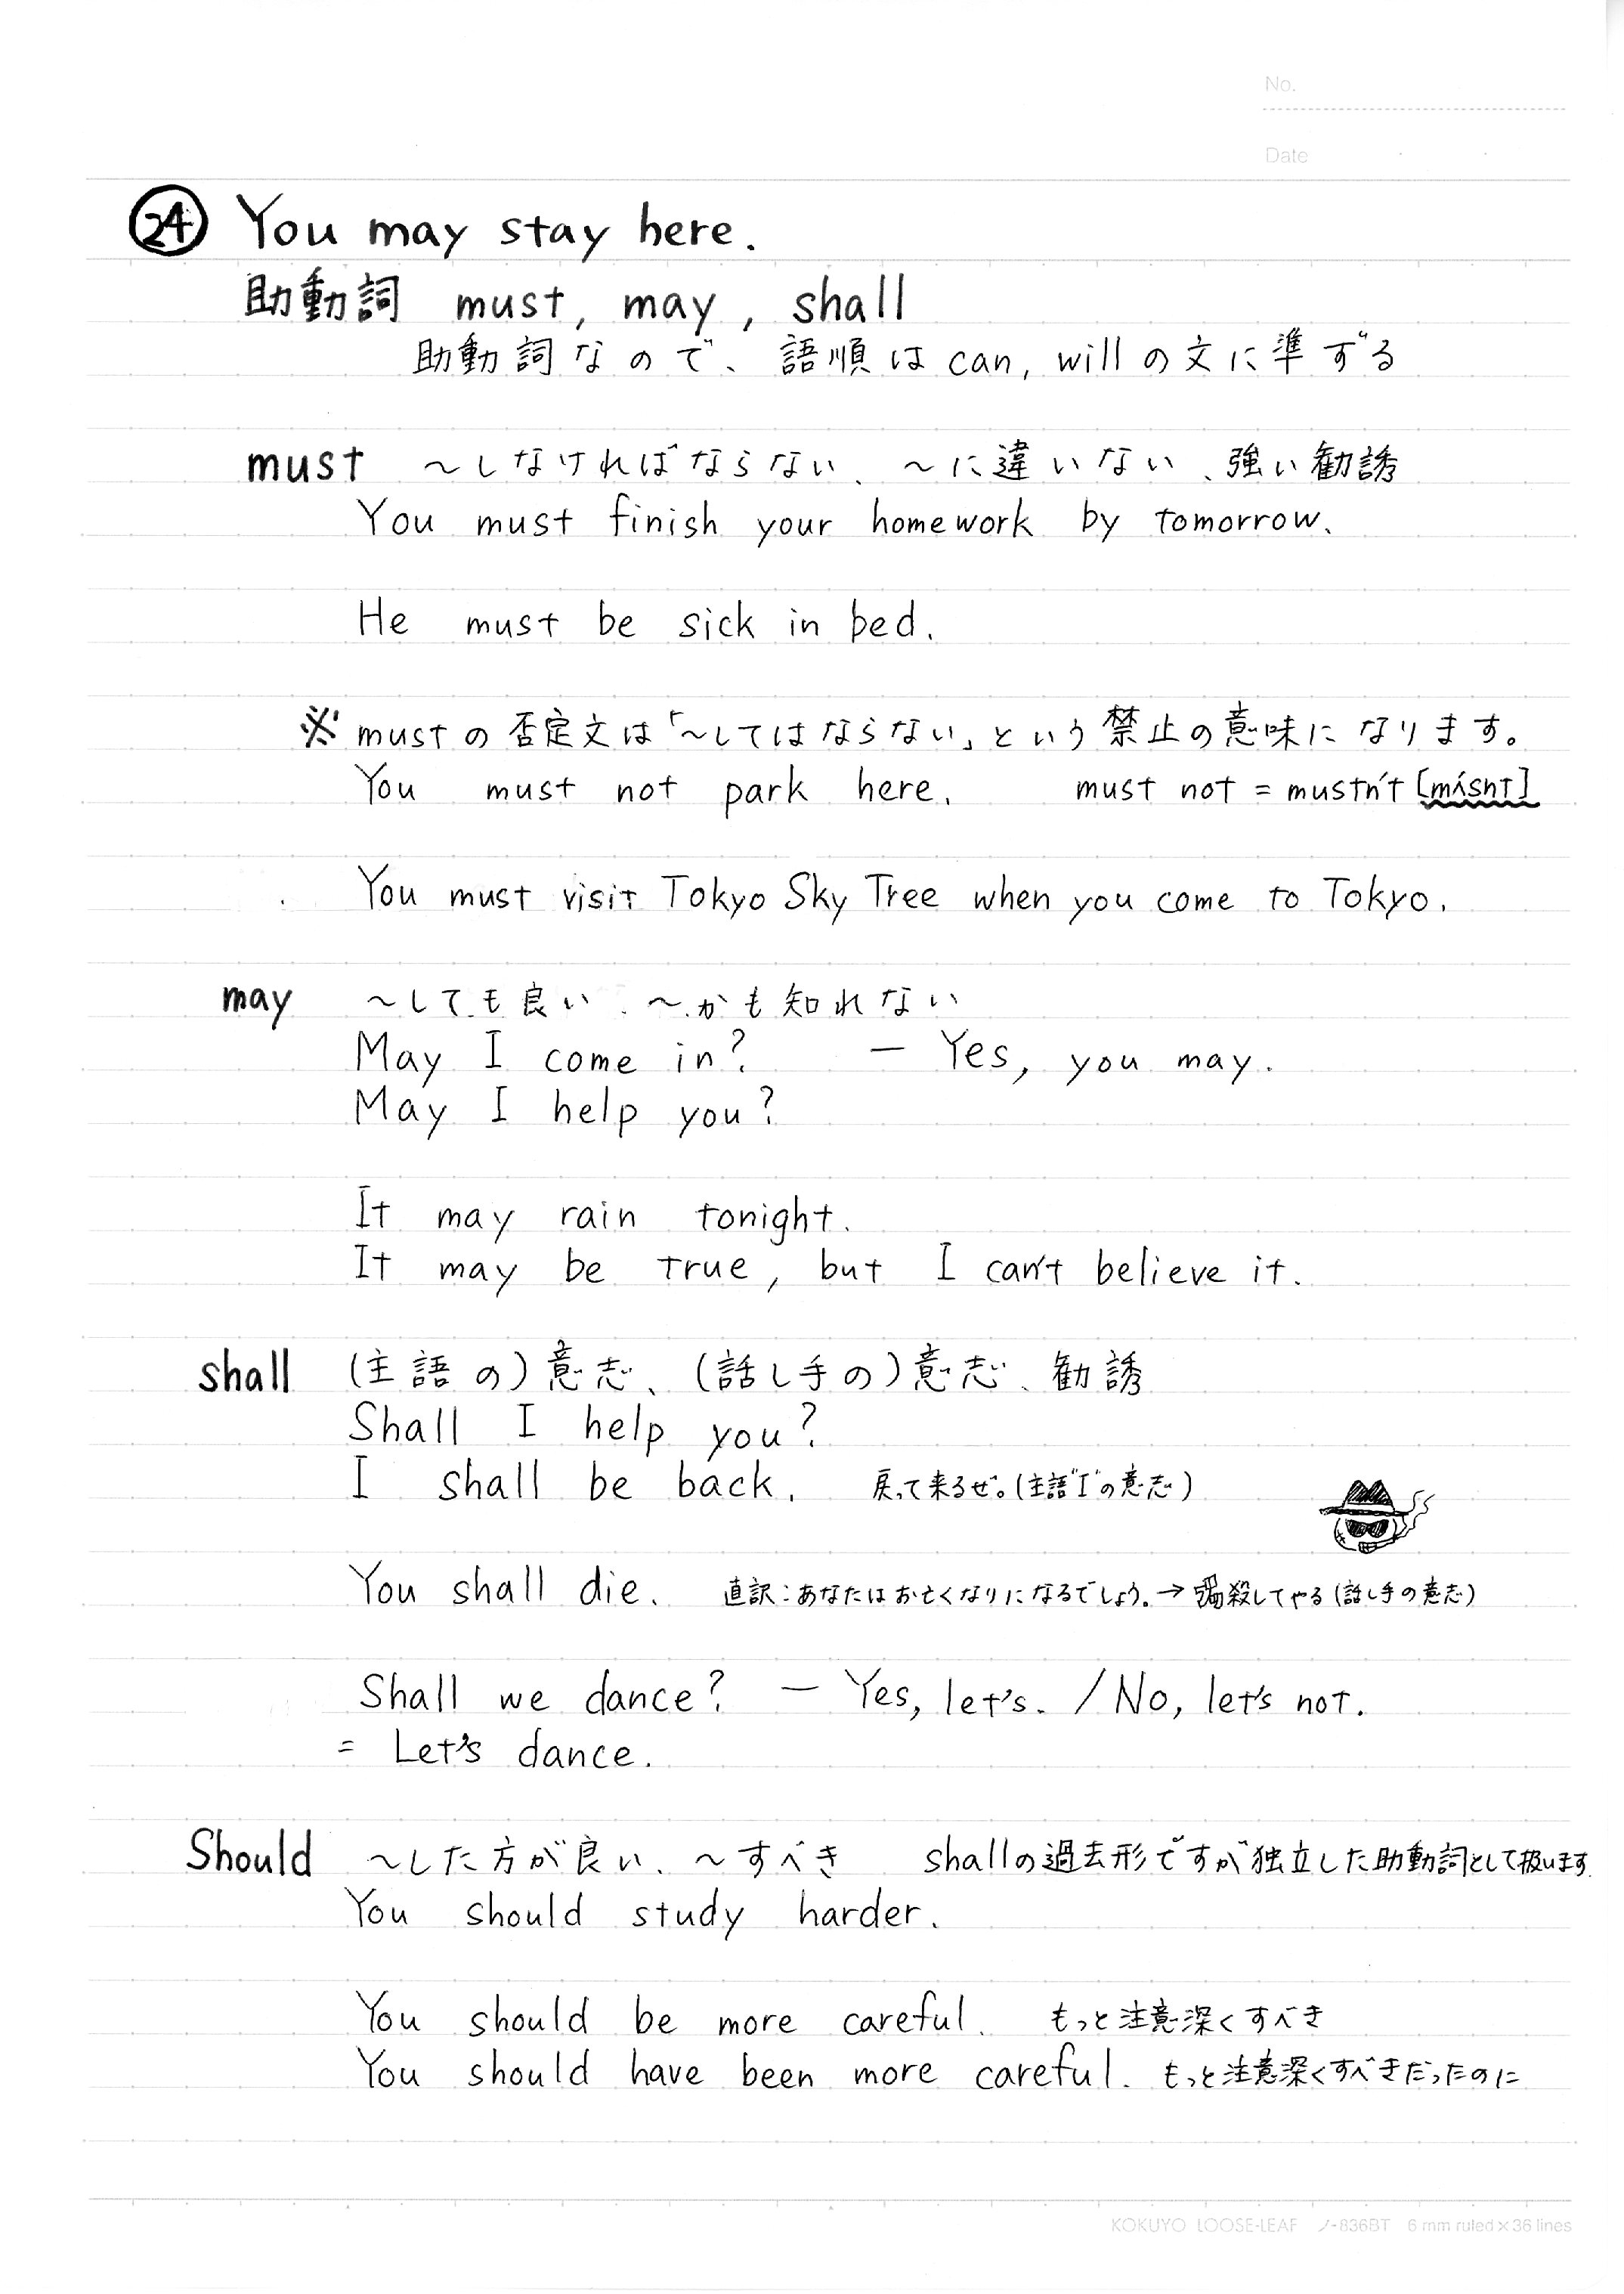 No.
Date
㉔ You may stay here.
助動詞 must, may, shall
助動詞なので、語順は can, will の文に準ずる
must ～しなければならない、～に違いない、強い勧誘
You must finish your homework by tomorrow.
He must be sick in bed.
※ mustの否定文は「～してはならない」という禁止の意味になります。
You must not park here. must not = mustn't [mʌ́snt]
You must visit Tokyo Sky Tree when you come to Tokyo.
may ～しても良い、～かも知れない
May I come in? — Yes, you may.
May I help you?
It may rain tonight.
It may be true, but I can't believe it.
shall (主語の)意志、(話し手の)意志、勧誘
Shall I help you?
I shall be back. 戻って来るぜ。(主語"I"の意志)
You shall die. 直訳:あなたはお亡くなりになるでしょう。→ 殺してやる(話し手の意志)
Shall we dance? — Yes, let's. / No, let's not.
= Let's dance.
Should ～した方が良い、～すべき shallの過去形ですが独立した助動詞として扱います.
You should study harder.
You should be more careful. もっと注意深くすべき
You should have been more careful. もっと注意深くすべきだったのに
KOKUYO LOOSE-LEAF ノ-836BT 6 mm ruled×36 lines